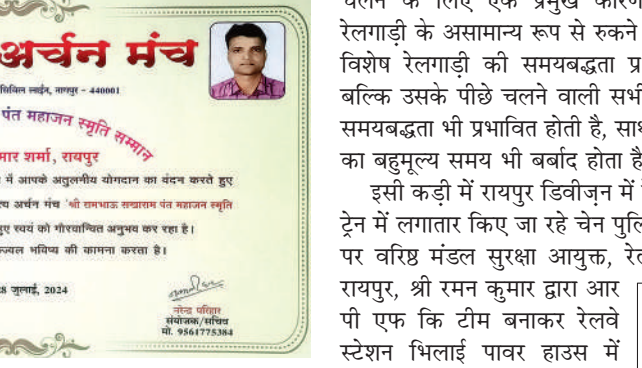 अर्चन मंच
सिविल लाईन, नागपुर - 440001
पंत महाजन स्मृति सम्मान
मार शर्मा, रायपुर
में आपके अतुलनीय योगदान का वंदन करते हुए
त्य अर्चन मंच 'श्री रामभाऊ सखाराम पंत महाजन स्मृति
हुए स्वयं को गौरवान्वित अनुभव कर रहा है।
ज्वल भविष्य की कामना करता है।
28 जुलाई, 2024
नरेन्द्र परिहार
संयोजक/सचिव
मो. 9561775384
चलने के लिए एक प्रमुख कारण
रेलगाड़ी के असामान्य रूप से रुकने
विशेष रेलगाड़ी की समयबद्धता प्र
बल्कि उसके पीछे चलने वाली सभी
समयबद्धता भी प्रभावित होती है, साथ
का बहुमूल्य समय भी बर्बाद होता है
इसी कड़ी में रायपुर डिवीज़न में
ट्रेन में लगातार किए जा रहे चेन पुलि
पर वरिष्ठ मंडल सुरक्षा आयुक्त, रेल
रायपुर, श्री रमन कुमार द्वारा आर
पी एफ कि टीम बनाकर रेलवे
स्टेशन भिलाई पावर हाउस में